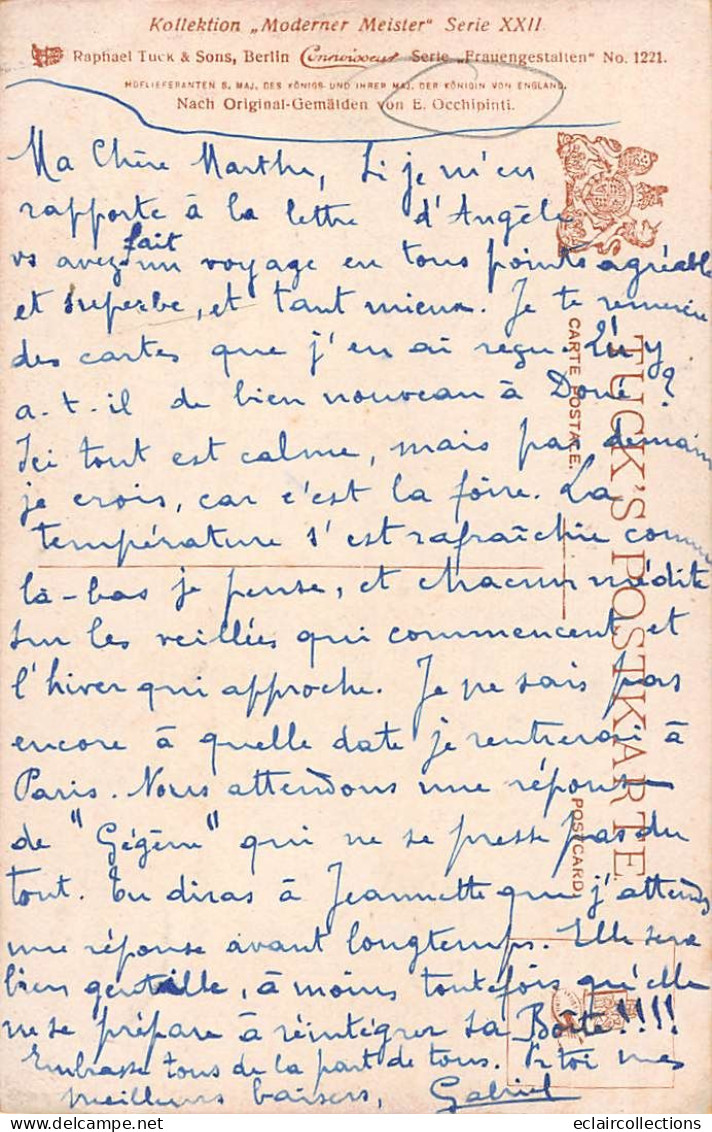 Kollektion „Moderner Meister" Serie XXII
Raphael Tuck & Sons, Berlin Connoisseur Serie „Frauengestalten" No. 1221.
HOFLIEFERANTEN S. MAJ. DES KÖNIGS UND IHRER MAJ. DER KÖNIGIN VON ENGLAND.
Nach Original-Gemälden von E. Occhipinti.
Ma Chère Marthe, Si je m'en
rapporte à la lettre d'Angèle
vs avez fait un voyage en tous points agréable
et superbe, et tant mieux. Je te remercie
des cartes que j'en ai reçu. Qu'y
a-t-il de bien nouveau à Doué ?
Ici tout est calme, mais pas demain
je crois, car c'est la foire. La
température s'est rafraîchie comme
là-bas je pense, et chacun médite
sur les veillées qui commencent et
l'hiver qui approche. Je ne sais pas
encore à quelle date je rentrerai à
Paris. Nous attendons une réponse
de "Gégène" qui ne se presse pas du
tout. Tu diras à Jeannette que j'attends
une réponse avant longtemps. Elle sera
bien gentille, à moins toutefois qu'elle
ne se prépare à réintégrer sa Boîte!!!!
Embrasse tous de la part de tous. Et toi mes
meilleurs baisers, Gabriel
TUCK'S POSTKARTE
CARTE POSTALE.
POSTCARD
eclaircollections